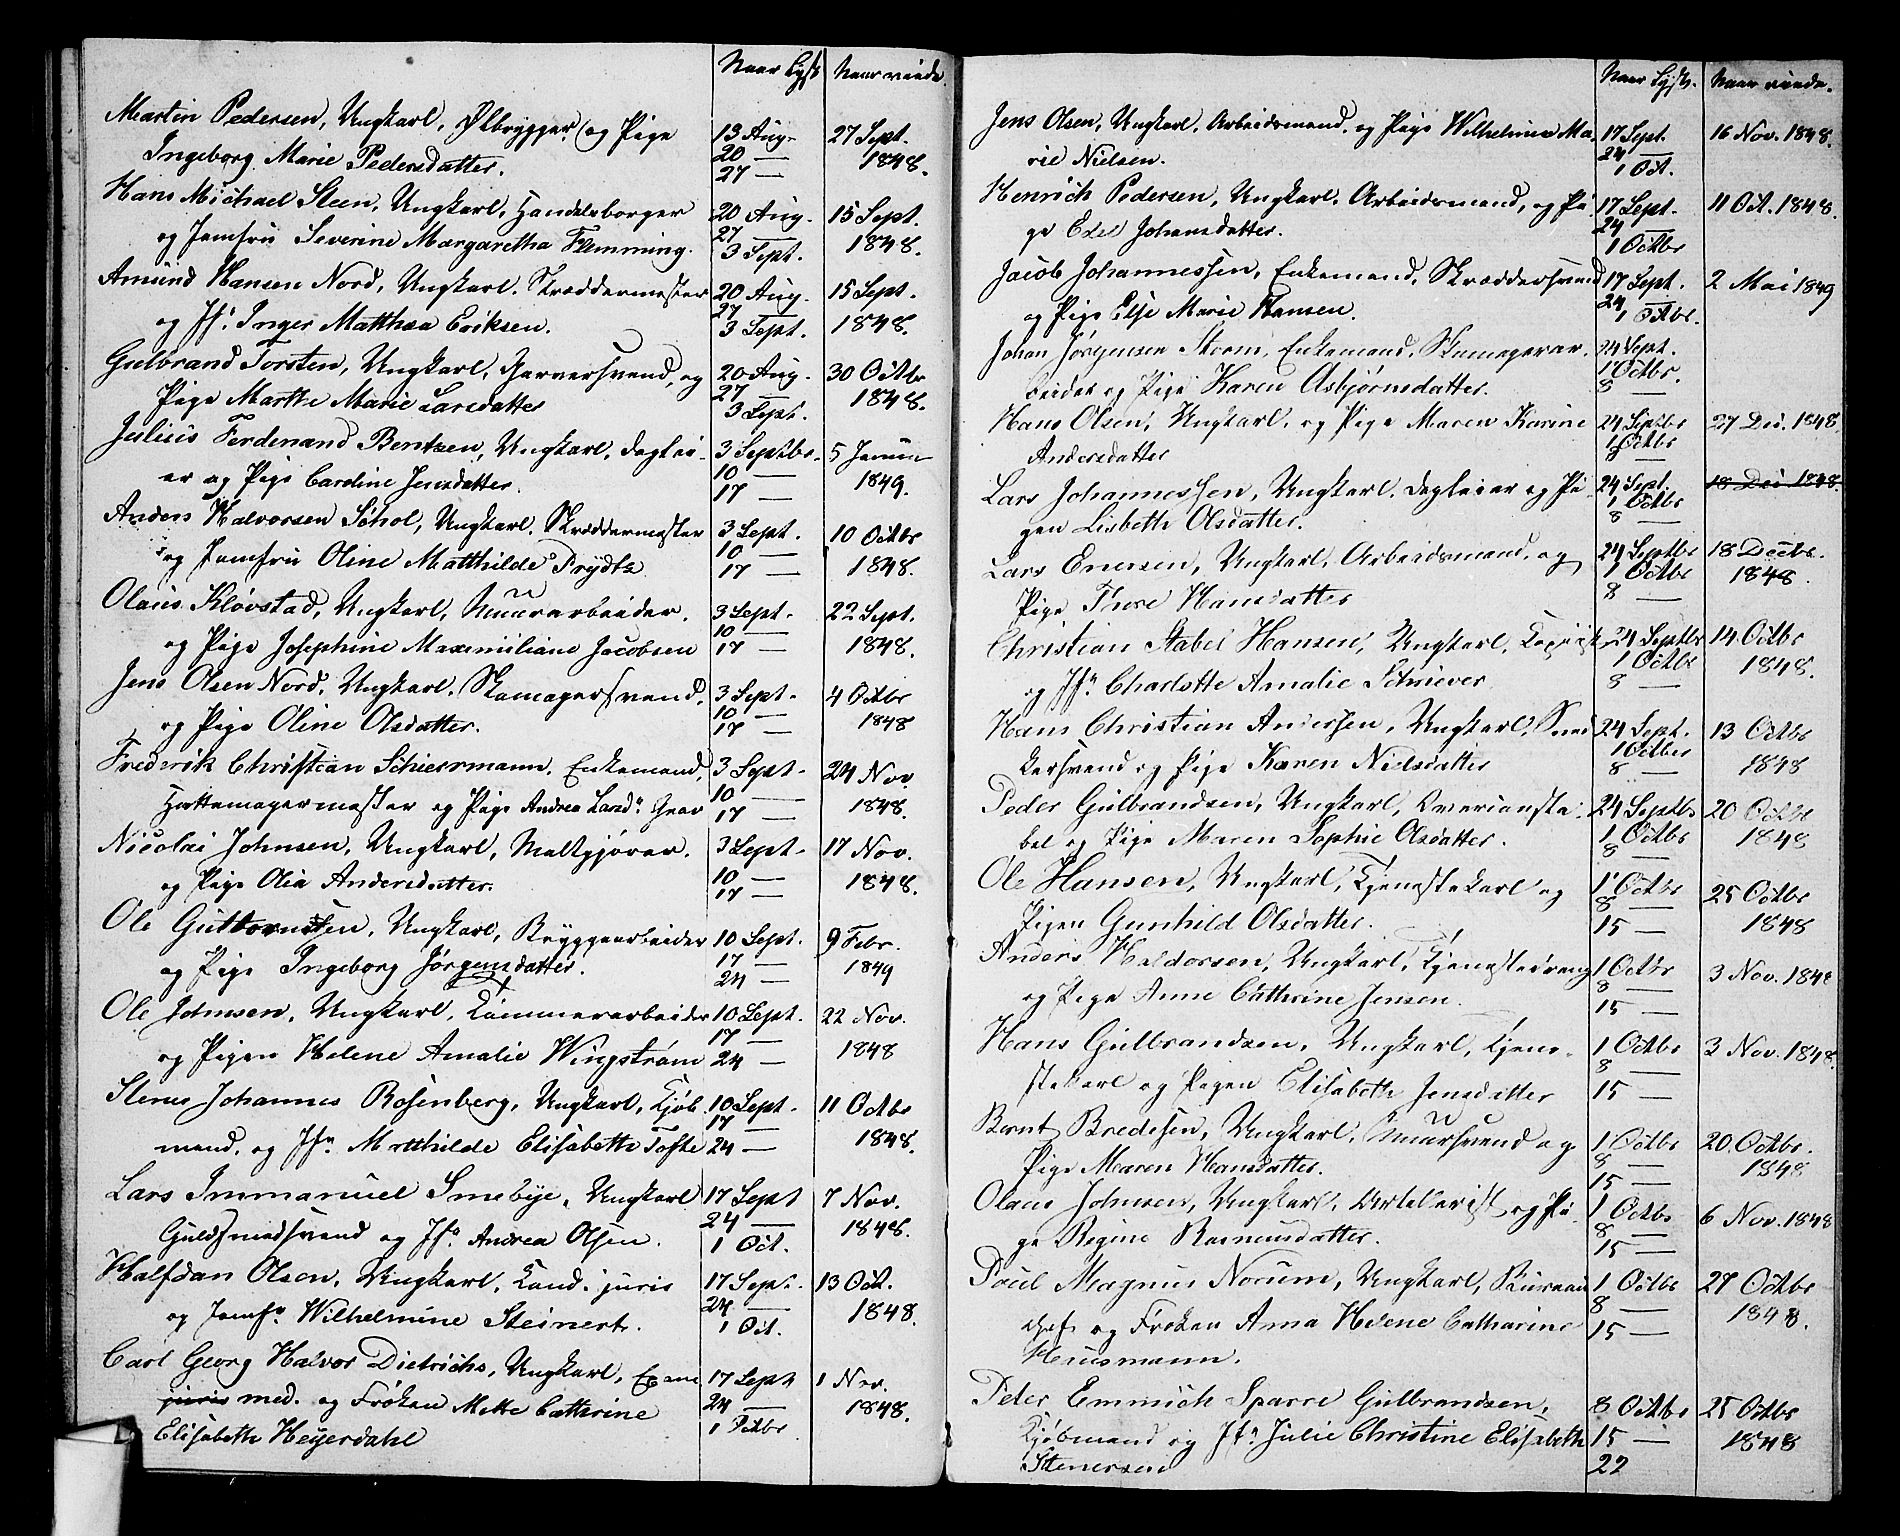 Naar lyst Naar viede.
Martin Pedersen, Ungkarl, Ølbrygger, og Pige 13 Aug. 27 Sept.
Ingeborg Marie Pedersdatter. 20 — 1848.
27 —
Hans Michael Steen, Ungkarl, Handelsborger 20 Aug. 15 Sept.
og Jomfru Severine Margaretha Flemming. 27 — 1848.
3 Sept.
Amund Hansen Nord, Ungkarl, Skræddermester 20 Aug. 15 Sept.
og Jfr. Inger Matthea Eriksen. 27 — 1848.
3 Sept.
Gulbrand Torsten, Ungkarl, Garversvend, og 20 Aug. 30 Octbr
Pige Marthe Marie Larsdatter 27 — 1848.
3 Sept.
Julius Ferdinand Bentzen, Ungkarl, Daglei- 3 Septbr. 5 Januar
er og Pige Caroline Jensdatter. 10 — 1849.
17 —
Anders Halvorsen Schol, Ungkarl, Skræddermester 3 Sept. 10 Octbr
og Jomfru Oline Matthilde Frydtz 10 — 1848.
17 —
Olaus Kløvstad, Ungkarl, Muurarbeider, 3 Sept. 22 Sept.
og Pige Josephine Maximiliane Jacobsen 10 — 1848.
17 —
Jens Olsen Nord, Ungkarl, Skomagersvend, 3 Sept. 4 Octbr
og Pige Oline Olsdatter. 10 — 1848
17 —
Frederik Christian Schiermann, Enkemand, 3 Sept. 24 Nov.
Hattemagermester og Pige Andrea Larsd. Grav 10 — 1848.
17 —
Nicolai Johnsen, Ungkarl, Maltgjører, 3 Sept. 17 Nov.
og Pige Olia Andersdatter. 10 — 1848.
17 —
Ole Guttormsen, Ungkarl, Bryggearbeider 10 Sept. 9 Febr.
og Pige Ingeborg Jørgensdatter. 17 — 1849
24 —
Ole Johnsen, Ungkarl, Tømmerarbeider 10 Sept. 22 Nov.
og Pigen Helene Amalie Wingstrøm 17 — 1848
24 —
Stener Johannes Rosenberg, Ungkarl, Kjøb- 10 Sept. 11 Octbr
mand, og Jfr. Matthilde Elisabeth Tofte 17 — 1848.
24 —
Lars Immanuel Smebye, Ungkarl 17 Sept 7 Nov.
Guldsmedsvend og Jfr. Andrea Olsen. 24 — 1848.
1 Oct.
Halfdan Olsen, Ungkarl, Cand. juris 17 Sept. 13 Oct.
og Jomfr. Wilhelmine Steinert. 24 — 1848.
1 Oct.
Carl Georg Halvor Dietrichs, Ungkarl, Exam. 17 Sept 1 Nov.
juris med. og Frøken Mette Cathrine 24 — 1848.
Elisabeth Heyerdahl 1 Octbr
Naar lyst. Naar viede.
Jens Olsen, Ungkarl, Arbeidsmand, og Pige Wilhelmine Ma- 17 Sept. 16 Nov. 1848.
rie Nielsen. 24 —
1 Oct.
Henrich Pedersen, Ungkarl, Arbeidsmand, og Pi- 17 Sept. 11 Oct. 1848.
ge Johansdatter. 24 —
1 Octbr
Jacob Johannessen, Enkemand, Skræddersvend 17 Sept. 2 Mai 1849
og Pige Else Marie Hansen. 24 —
1 Octbr.
Johan Jørgensen Storm, Enkemand, Skomagerar- 24 Sept.
beider og Pige Karen Asbjørnsdatter. 1 Octbr.
8 —
Hans Olsen, Ungkarl, og Pige Maren Karine 24 Septbr 27 Dec. 1848.
Andersdatter 1 Octbr
8 —
Lars Johannessen, Ungkarl, Dagleier og Pi- 24 Sept. 18 Dec 1848.
gen Lisbeth Olsdatter. 1 Octbr
8 —
Lars Enersen, Ungkarl, Arbeidsmand, og 24 Septbr 18 Decbr.
Pige Thore Hansdatter 1 Octbr 1848.
8 —
Christian Stabel Hansen, Ungkarl, Kopist, 24 Septbr 14 Octbr
og Jfr. Charlotte Amalie Schriever 1 Octbr 1848.
8 —
Hans Christian Andersen, Ungkarl, Sned- 24 Sept. 13 Octbr
kersvend og Pige Karen Nielsdatter 1 Octbr 1848
8 —
Peder Gulbrandsen, Ungkarl, Qvartersta- 24 Septbr 20 Octbr
bel og Pige Maren Sophie Olsdatter. 1 Octbr 1848
8 —
Ole Hansen, Ungkarl, Tjenestekarl og 1 Octbr 25 Octbr
Pigen Gunhild Olsdatter. 8 — 1848
15 —
Anders Haldorsen, Ungkarl, Tjenestedreng 1 Octbr 3 Nov. 1848
og Pige Anne Cathrine Jensen. 8 —
15 —
Hans Gulbrandsen, Ungkarl, Tjene- 1 Octbr 3 Nov. 1848.
stekarl og Pigen Elisabeth Jensdatter 8 —
15 —
Bernt Bredesen, Ungkarl, Muursvend og 1 Octbr 20 Octbr.
Pige Maren Hansdatter. 8 — 1848
15 —
Olaus Johnsen, Ungkarl, Artillerist og Pi- 1 Octbr 6 Nov. 1848
ge Regine Rasmusdatter. 8 —
15 —
Poul Magnus Norum, Ungkarl, Bureau- 1 Octbr 27 Octbr
chef og Frøken Anna Helene Catharine 8 — 1848.
Heusmann. 15 —
Peter Emmich Sparre Gulbrandsen, 8 Octbr 25 Octbr
Kjøbmand og Jfr. Julie Christine Elisabeth 15 — 1848
Stenersen 22